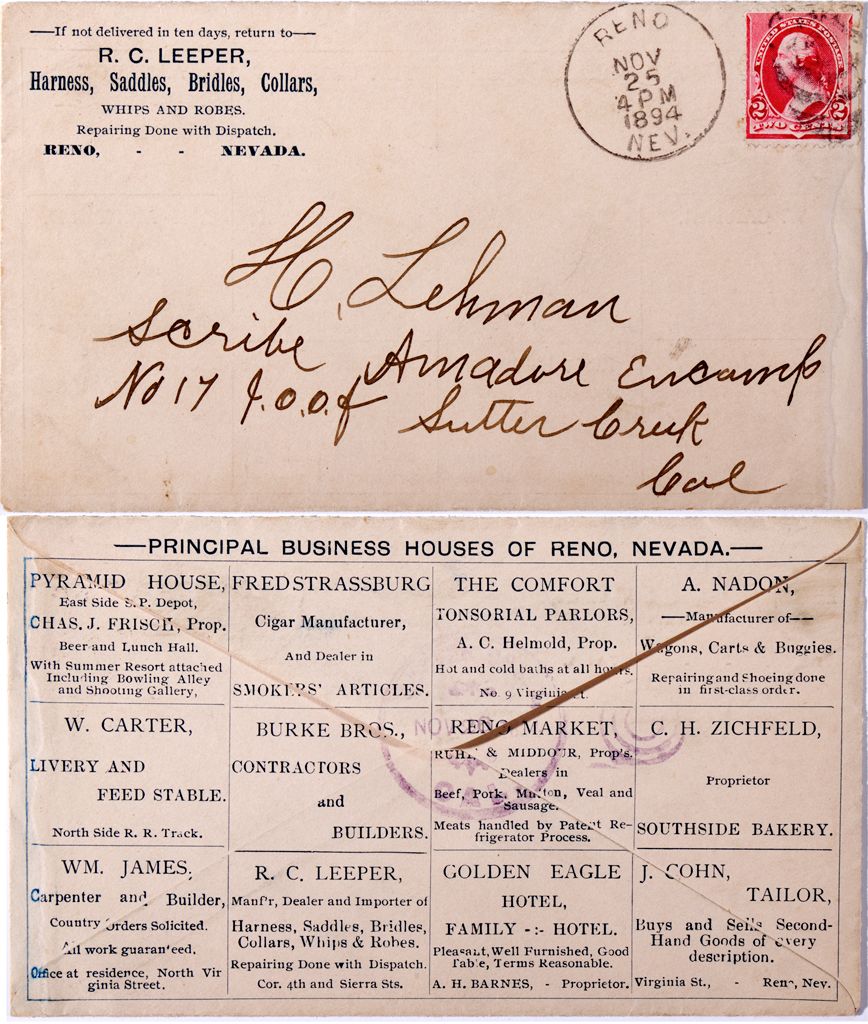 —If not delivered in ten days, return to—
R. C. LEEPER,
Harness, Saddles, Bridles, Collars,
WHIPS AND ROBES.
Repairing Done with Dispatch.
RENO, - - NEVADA.
RENO
NOV
25
4 PM
1894
NEV.
UNITED STATES POSTAGE
2 2
TWO CENTS
H. Lehman
Scribe Amadore Encamp
No 17 I.O.O.f Sutter Creek
Cal
—PRINCIPAL BUSINESS HOUSES OF RENO, NEVADA.—
PYRAMID HOUSE,
East Side S.P. Depot,
CHAS. J. FRISCH, Prop.
Beer and Lunch Hall.
With Summer Resort attached
Including Bowling Alley
and Shooting Gallery,
FRED STRASSBURG
Cigar Manufacturer,
And Dealer in
SMOKERS' ARTICLES.
THE COMFORT
TONSORIAL PARLORS,
A. C. Helmold, Prop.
Hot and cold baths at all hours.
No. 9 Virginia St.
A. NADON,
—Manufacturer of—
Wagons, Carts & Buggies.
Repairing and Shoeing done
in first-class order.
W. CARTER,
LIVERY AND
FEED STABLE.
North Side R. R. Track.
BURKE BROS.,
CONTRACTORS
and
BUILDERS.
RENO MARKET,
RUHL & MIDDOUR, Prop's.
Dealers in
Beef, Pork, Mutton, Veal and
Sausage.
Meats handled by Patent Re-
frigerator Process.
NOV
CAL
C. H. ZICHFELD,
Proprietor
SOUTHSIDE BAKERY.
WM. JAMES,
Carpenter and Builder,
Country Orders Solicited.
All work guaranteed.
Office at residence, North Vir
ginia Street.
R. C. LEEPER,
Manf'r, Dealer and Importer of
Harness, Saddles, Bridles,
Collars, Whips & Robes.
Repairing Done with Dispatch.
Cor. 4th and Sierra Sts.
GOLDEN EAGLE
HOTEL,
FAMILY -:- HOTEL.
Pleasant, Well Furnished, Good
Table, Terms Reasonable.
A. H. BARNES, - Proprietor.
J. COHN,
TAILOR,
Buys and Sells Second-
Hand Goods of every
description.
Virginia St., - Reno, Nev.